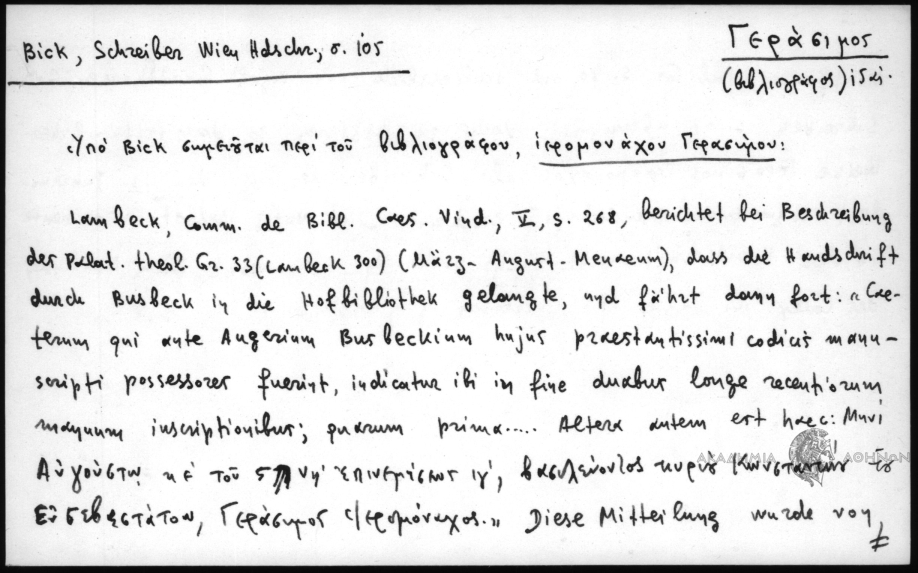 Bick, Schreiber Wien Hdschr., σ. 105
Γεράσιμος
(βιβλιογράφος) ἰδαί.
Ὑπό Bick σημειοῦται περί τοῦ βιβλιογράφου, ἱερομονάχου Γερασίμου:
Lambeck, Comm. de Bibl. Caes. Vind., V, S. 268, berichtet bei Beschreibung
der Palat. theol. Gr. 33 (Lambeck 300) (März-August-Menaeum), dass die Handschrift
durch Busbeck in die Hofbibliothek gelangte, und fährt dann fort: « Cae-
terum qui ante Augerium Busbeckium hujus praestantissimi codicis manu-
scripti possessores fuerint, indicatur ibi in fine duabus longe recentiorum
manuum inscriptionibus; quarum prima..... Altera autem est haec: Μηνί
Αὐγούστῳ κέ τοῦ ἐπινεμήσεως ιγ', βασιλεύοντος κυρίου Κωνσταντίνου τοῦ
Εὐσεβεστάτου, Γεράσιμος Ἱερομόναχος.» Diese Mitteilung wurde von
ΑΚΑΔΗΜΙΑ ΑΘΗΝΩΝ